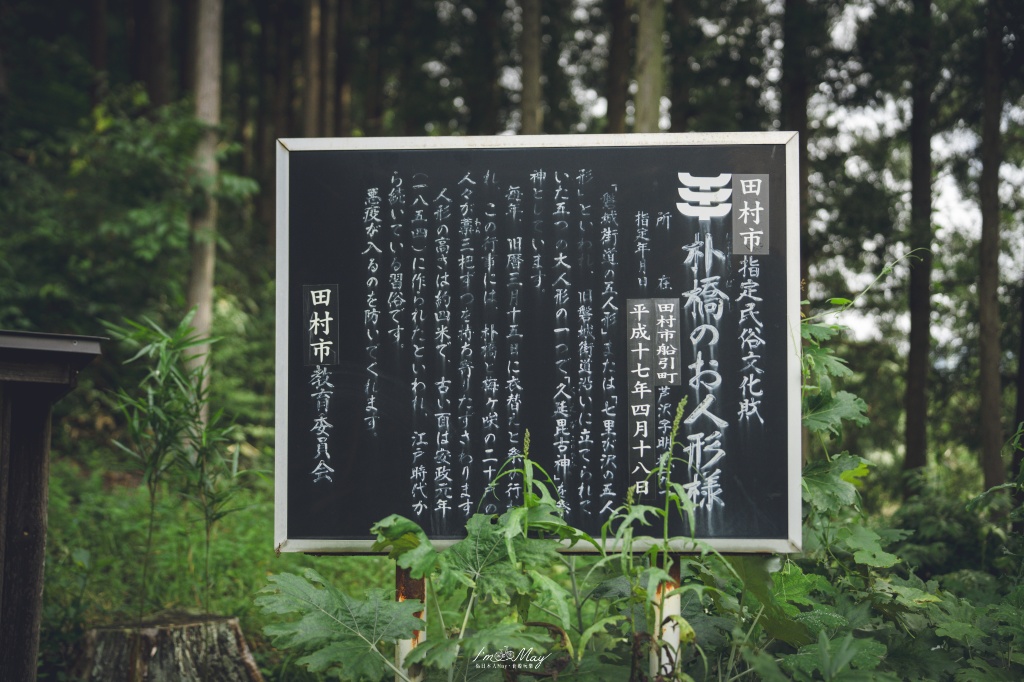 田村市指定民俗文化財
朴橋のお人形様
所在 田村市船引町芦沢字明
指定年月日 平成十七年四月十八日
「磐城街道の五人形」または「七里沢の五人
形」といわれ、旧磐城街道沿いに立てられて
いた五つの大人形の一つで、「久延毘古神」を祭
神としています。
毎年、旧暦三月十五日に衣替えと祭が行
れ、この行事には、朴橋と海ヶ咲の二十
人々が藁三把ずつを持ち寄りたずさわります
人形の高さは約四米で、古い面は安政元年
(一八五四)に作られたといわれ、江戸時代か
ら続いている習俗です。
悪疫が入るのを防いでくれます。
田村市教育委員会
I'm May